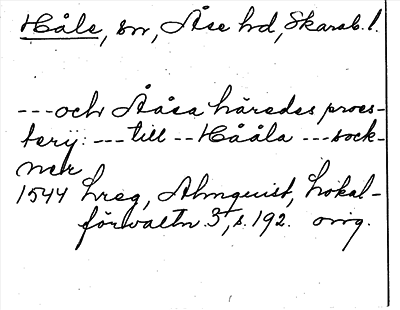 Håle, sn, Åse hd, Skarab. l.
---och Ååsa häredes proes-
terij: --- till -- Hååla --- sock-
ner
1544 hreg, Almquist, Lokal-
förvaltn 3, s. 192. orig.